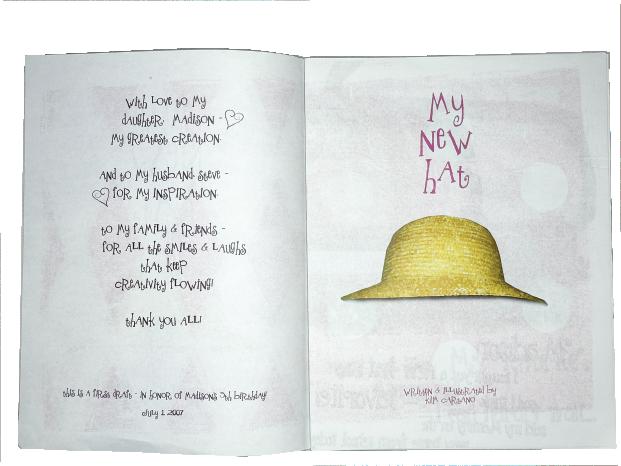 With Love to My
daughter, Madison -
My greatest creation.
And to My husband, Steve -
for My inspiration.
to My family & friends -
for all the smiles & laughs
that keep
creativity flowing!
thank you all!
this is a first draft - in honor of Madison's 5th birthday!
July 1, 2007
My
New
hat
Written & illustrated by
Kim